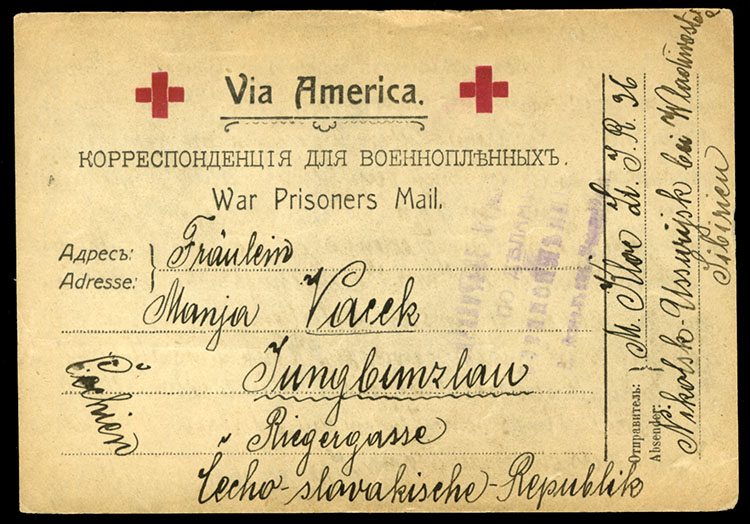 Via America.
КОРРЕСПОНДЕНЦІЯ ДЛЯ ВОЕННОПЛѢННЫХЪ.
War Prisoners Mail.
Адресъ:
Adresse:
Fräulein
Manja Vacek
Jungbunzlau
Riegergasse
Čecho-slovakische-Republik
Čechien
Отправитель:
Absender:
M. Klor Lt. I.R. 36
Nikolsk-Ussurijsk bei Wladiwostok
Sibirien